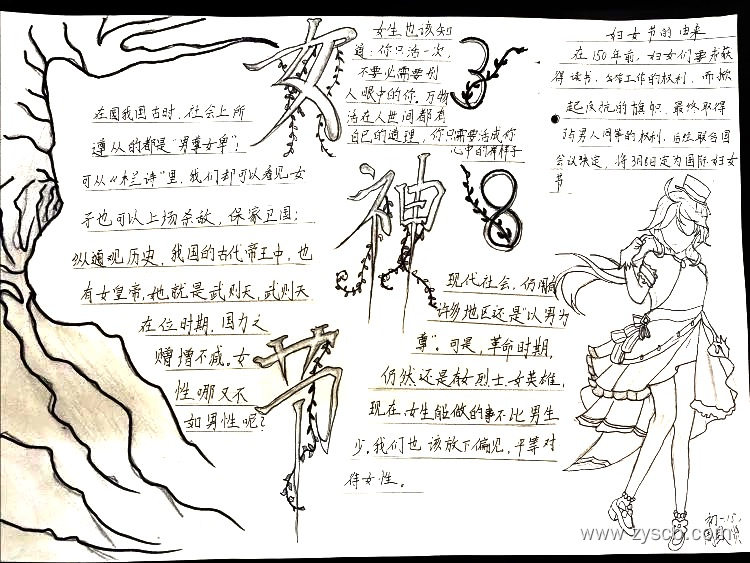 女神节
3
8
在国我国古时，社会上所
遵从的都是“男尊女卑”；
可从《木兰诗》里，我们却可以看见女
子也可以上场杀敌，保家卫国；
纵观历史，我国的古代帝王中，也
有女皇帝，她就是武则天，武则天
在位时期，国力之
增不减。女
性哪又不
如男性呢？
女生也该知
道：你只活一次，
不要必需要别
人眼中的你。万物
活在人世间都有
自己的道理，你只需要活成你
心中的那样子
妇女节的由来
在150年前，妇女们要求获
得读书、工作的权利，而掀
起反抗的旗帜，最终取得
与男人同等的权利，后经联合国
会议决定，将3月8日定为国际妇女
节
现代社会，仍有
许多地区还是“以男为
尊”。可是，革命时期，
仍然还是有女烈士、女英雄，
现在，女生能做的事不比男生
少，我们也该放下偏见，平等对
待女性。
初一15
www.zyscb.com